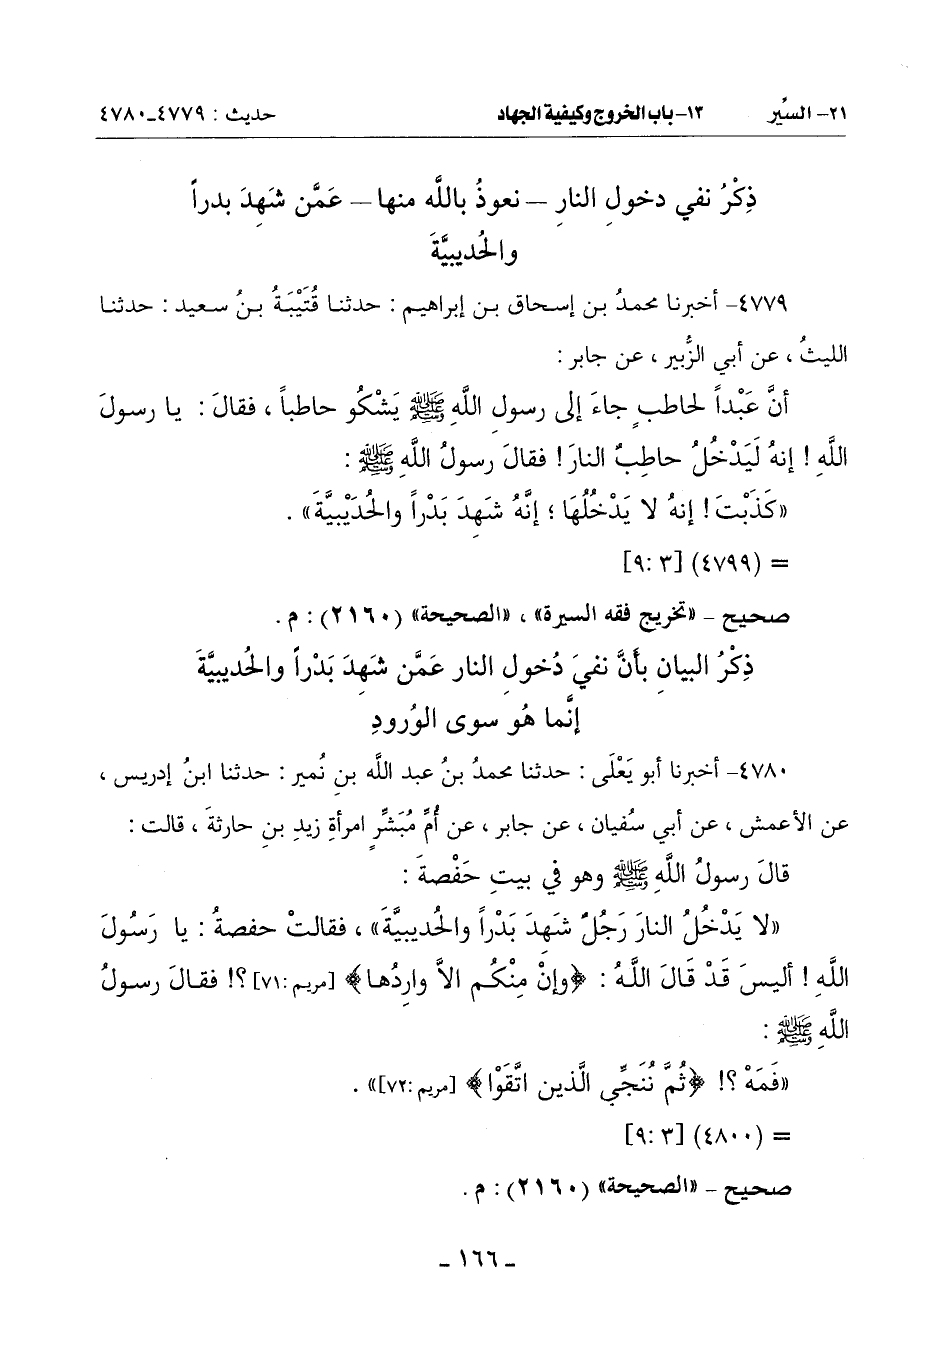 ٢١- السِّير ١٣- باب الخروج وكيفية الجهاد حديث : ٤٧٧٩-٤٧٨٠
ذِكْرُ نفي دخولِ النارِ – نعوذُ باللَّه منها – عَمَّن شَهِدَ بدراً
والحُديبيَّةَ
٤٧٧٩- أخبرنا محمدُ بن إسحاق بن إبراهيم : حدثنا قُتَيْبَةُ بنُ سعيد : حدثنا
الليثُ ، عن أبي الزُّبير ، عن جابر :
أنَّ عَبْداً لحاطبٍ جاءَ إلى رسولِ اللَّهِ ﷺ يَشْكُو حاطباً ، فقالَ : يا رسولَ
اللَّهِ ! إنهُ لَيَدْخُلُ حاطِبٌ النارَ ! فقالَ رسولُ اللَّهِ ﷺ :
«كَذَبْتَ ! إنهُ لا يَدْخُلُهَا ؛ إنَّهُ شَهِدَ بَدْراً والحُدَيْبِيَّةَ» .
= (٤٧٩٩) [٣ :٩]
صحيح – «تخريج فقه السيرة» ، «الصحيحة» (٢١٦٠) : م .
ذِكْرُ البيانِ بأنَّ نفيَ دُخولِ النار عَمَّن شَهِدَ بَدْراً والحُديبيَّةَ
إنَّما هُو سوى الوُرودِ
٤٧٨٠- أخبرنا أبو يَعْلَى : حدثنا محمدُ بنُ عبد اللَّه بنِ نُمير : حدثنا ابنُ إدريس ،
عن الأعمش ، عن أبي سُفيان ، عن جابر ، عن أُمِّ مُبَشِّرٍ امرأةِ زيدِ بنِ حارثةَ ، قالت :
قالَ رسولُ اللَّهِ ﷺ وهو في بيتِ حَفْصةَ :
«لا يَدْخُلُ النارَ رَجُلٌ شَهِدَ بَدْراً والحُديبيَّةَ» ، فقالتْ حفصةُ : يا رَسُولَ
اللَّهِ ! أليسَ قَدْ قَالَ اللَّهُ : ﴿وإنْ مِنْكُم الاَّ وارِدُها﴾ [مريم :٧١] ؟! فقالَ رسولُ
اللَّهِ ﷺ :
«فَمَهْ ؟! ﴿ثُمَّ نُنَجِّي الَّذين اتَّقَوْا﴾ [مريم :٧٢]» .
= (٤٨٠٠) [٣ :٩]
صحيح – «الصحيحة» (٢١٦٠) : م .
- ١٦٦ -